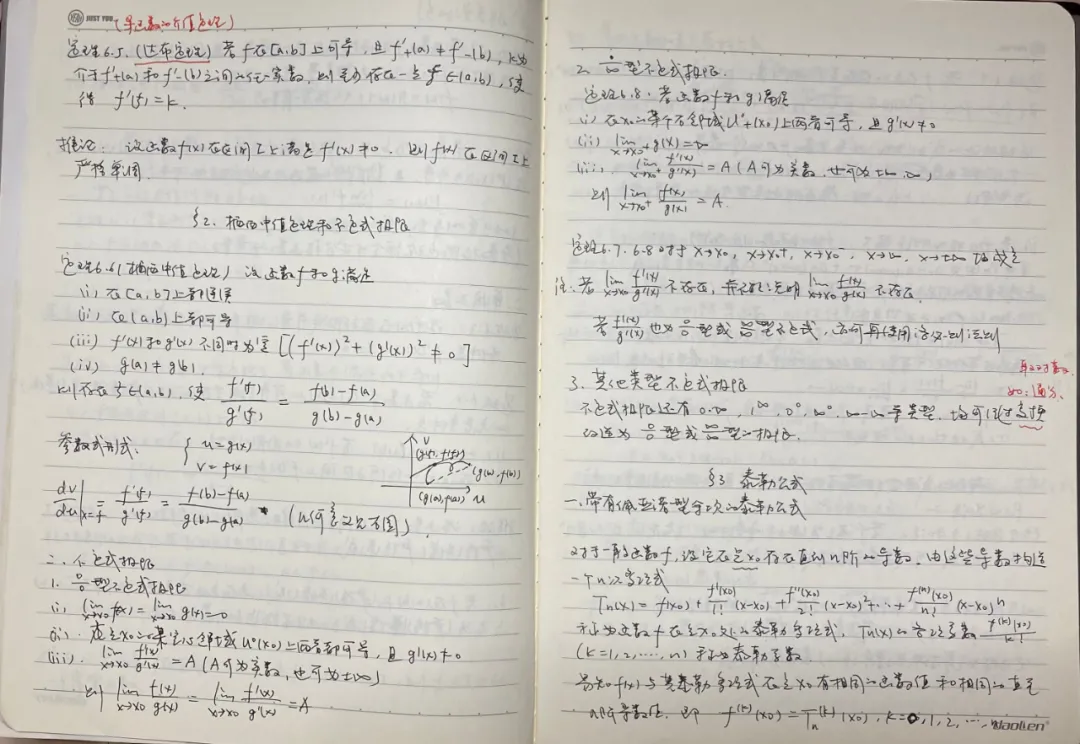 JUST YOU
(导函数的介值定理)
定理6.5.(达布定理) 若f在[a,b]上可导,且f'+(a)≠f'-(b),k为
介于f'+(a)和f'-(b)之间的任一实数,则至少存在一点ξ∈(a,b),使
得 f'(ξ)=k.
推论: 设函数f(x)在区间I上满足f'(x)≠0.则f(x)在区间I上
严格单调.
§2. 柯西中值定理和不定式极限
定理6.6(柯西中值定理) 设函数f和g满足
(i) 在[a,b]上都连续
(ii) 在(a,b)上都可导
(iii) f'(x)和g'(x)不同时为零 [(f'(x))²+(g'(x))²≠0]
(iv) g(a)≠g(b).
则存在ξ∈(a,b),使 f'(ξ)/g'(ξ) = (f(b)-f(a))/(g(b)-g(a))
参数式形式: { u=g(x)
v=f(x)
v
(g(ξ),f(ξ))
(g(b),f(b))
(g(a),f(a)) u
dv/du|x=ξ = f'(ξ)/g'(ξ) = (f(b)-f(a))/(g(b)-g(a)) (几何意义见右图).
二.不定式极限
1. 0/0型不定式极限
(i) lim x→x0 f(x)=lim x→x0 g(x)=0
(ii). 在点x0的某空心邻域U°(x0)上两者都可导,且g'(x)≠0
(iii). lim x→x0 f'(x)/g'(x) = A (A可为实数,也可为±∞)
则 lim x→x0 f(x)/g(x) = lim x→x0 f'(x)/g'(x) = A
2. ∞/∞型不定式极限.
定理6.8.若函数f和g满足
(i) 在x0的某个右邻域U°+(x0)上两者可导,且g'(x)≠0
(ii) lim x→x0+ g(x)=∞
(iii). lim x→x0+ f'(x)/g'(x) = A (A可为实数,也可为±∞,∞)
则 lim x→x0+ f(x)/g(x) = A.
定理6.7. 6.8对于x→x0, x→x0+, x→x0-, x→∞, x→±∞均成立
注:若 lim x→x0 f'(x)/g'(x) 不存在,并不能说明 lim x→x0 f(x)/g(x) 不存在.
若 f'(x)/g'(x) 也为0/0型或∞/∞型不定式,可再使用洛必达法则
3. 其他类型不定式极限
不定式极限还有0·∞, 1^∞, 0^0, ∞^0, ∞-∞等类型.均可通过变换
改造为0/0型或∞/∞型的极限.
§3 泰勒公式
一.带有佩亚诺型余项的泰勒公式
对于一般函数f,设它在点x0存在直到n阶的导数.由这些导数构造
一个n次多项式
Tn(x)=f(x0)+f'(x0)/1!(x-x0)+f''(x0)/2!(x-x0)²+...+f^(n)(x0)/n!(x-x0)^n
称为函数f在点x0处的泰勒多项式,Tn(x)的各项系数 f^(k)(x0)/k!
(k=1,2,...,n)称为泰勒系数.
易知f(x)与其泰勒多项式在点x0有相同的函数值和相同的直至
n阶导数值.即 f^(k)(x0)=Tn^(k)(x0), k=0,1,2,...,